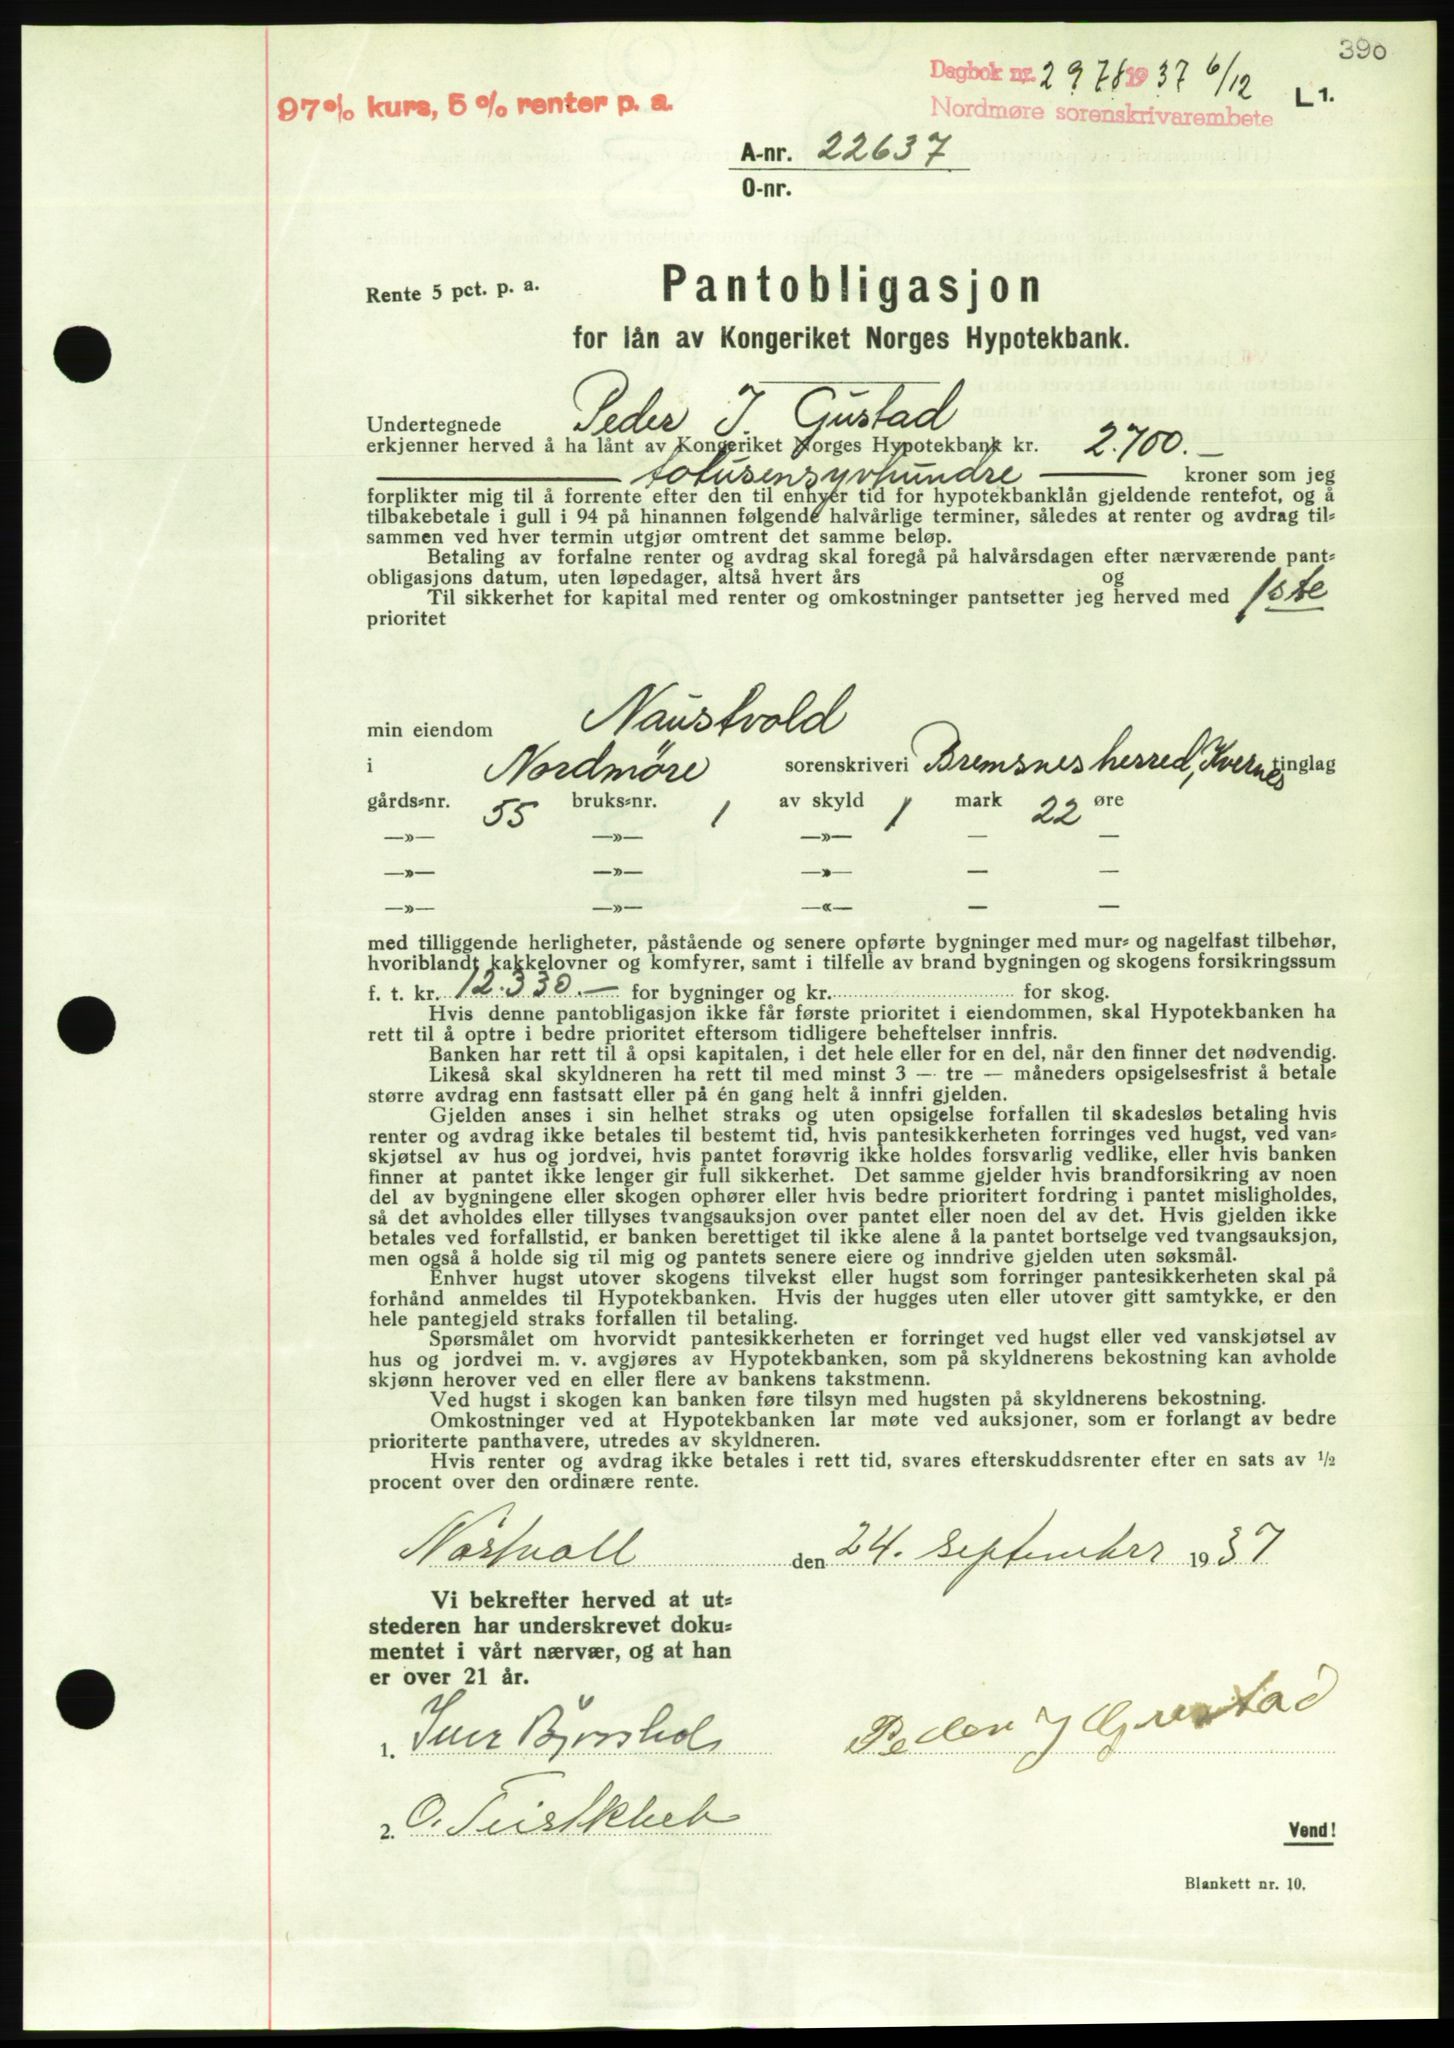 390
Dagbok nr. 2978 1937 6/12
97% kurs, 5% renter p. a.
L 1.
Nordmøre sorenskrivarembete
A-nr. 22637
O-nr.
Rente 5 pct. p. a.
Pantobligasjon
for lån av Kongeriket Norges Hypotekbank.
Undertegnede Peder I. Gustad
erkjenner herved å ha lånt av Kongeriket Norges Hypotekbank kr. 2.700.—
totusensyvhundre — kroner som jeg
forplikter mig til å forrente efter den til enhver tid for hypotekbanklån gjeldende rentefot, og å
tilbakebetale i gull i 94 på hinannen følgende halvårlige terminer, således at renter og avdrag til=
sammen ved hver termin utgjør omtrent det samme beløp.
Betaling av forfalne renter og avdrag skal foregå på halvårsdagen efter nærværende pant=
obligasjons datum, uten løpedager, altså hvert års og
Til sikkerhet for kapital med renter og omkostninger pantsetter jeg herved med 1ste
prioritet
min eiendom Naustvold
i Nordmøre sorenskriveri Bremsnes herred, Kvernes tinglag
gårds=nr. 55 bruks=nr. 1 av skyld 1 mark 22 øre
—»— —»— —»— — —
—»— —»— —»— — —
—»— —»— —«— — —
med tilliggende herligheter, påstående og senere opførte bygninger med mur= og nagelfast tilbehør,
hvoriblandt kakkelovner og komfyrer, samt i tilfelle av brand bygningen og skogens forsikringssum
f. t. kr. 12.330.— for bygninger og kr. for skog.
Hvis denne pantobligasjon ikke får første prioritet i eiendommen, skal Hypotekbanken ha
rett til å optre i bedre prioritet eftersom tidligere beheftelser innfris.
Banken har rett til å opsi kapitalen, i det hele eller for en del, når den finner det nødvendig.
Likeså skal skyldneren ha rett til med minst 3 — tre — måneders opsigelsesfrist å betale
større avdrag enn fastsatt eller på én gang helt å innfri gjelden.
Gjelden anses i sin helhet straks og uten opsigelse forfallen til skadesløs betaling hvis
renter og avdrag ikke betales til bestemt tid, hvis pantesikkerheten forringes ved hugst, ved van=
skjøtsel av hus og jordvei, hvis pantet forøvrig ikke holdes forsvarlig vedlike, eller hvis banken
finner at pantet ikke lenger gir full sikkerhet. Det samme gjelder hvis brandforsikring av noen
del av bygningene eller skogen ophører eller hvis bedre prioritert fordring i pantet misligholdes,
så det avholdes eller tillyses tvangsauksjon over pantet eller noen del av det. Hvis gjelden ikke
betales ved forfallstid, er banken berettiget til ikke alene å la pantet bortselge ved tvangsauksjon,
men også å holde sig til mig og pantets senere eiere og inndrive gjelden uten søksmål.
Enhver hugst utover skogens tilvekst eller hugst som forringer pantesikkerheten skal på
forhånd anmeldes til Hypotekbanken. Hvis der hugges uten eller utover gitt samtykke, er den
hele pantegjeld straks forfallen til betaling.
Spørsmålet om hvorvidt pantesikkerheten er forringet ved hugst eller ved vanskjøtsel av
hus og jordvei m. v. avgjøres av Hypotekbanken, som på skyldnerens bekostning kan avholde
skjønn herover ved en eller flere av bankens takstmenn.
Ved hugst i skogen kan banken føre tilsyn med hugsten på skyldnerens bekostning.
Omkostninger ved at Hypotekbanken lar møte ved auksjoner, som er forlangt av bedre
prioriterte panthavere, utredes av skyldneren.
Hvis renter og avdrag ikke betales i rett tid, svares efterskuddsrenter efter en sats av ½
procent over den ordinære rente.
den 24. september 1937
Vi bekrefter herved at ut=
stederen har underskrevet doku=
mentet i vårt nærvær, og at han
er over 21 år.
1. Iver
Peder J Gustad
2. O.
Vend!
Blankett nr. 10.